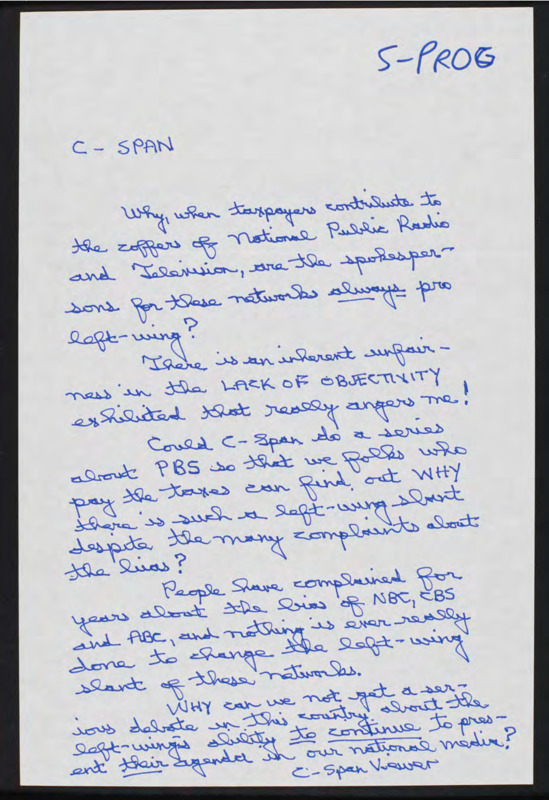 S-PROG
C - SPAN
Why, when taxpayers contribute to
the coffers of National Public Radio
and Television, are the spokesper-
sons for these networks always pro
left-wing?
There is an inherent unfair-
ness in the LACK OF OBJECTIVITY
exhibited that really angers me!
Could C-Span do a series
about PBS so that we folks who
pay the taxes can find out WHY
there is such a left-wing slant
despite the many complaints about
the bias?
People have complained for
years about the bias of NBC, CBS
and ABC, and nothing is ever really
done to change the left-wing
slant of these networks.
WHY can we not get a ser-
ious debate in this country about the
left-wings ability to continue to pres-
ent their agenda in our national media?
C-Span Viewer